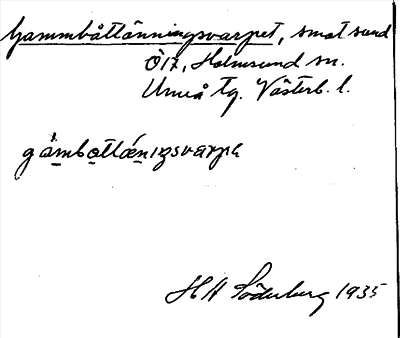 Gammbåttänningsvarpet, smat sund
Ö17, Holmsund sn.
Umeå tg. Västerb. l.
gåmbottǽnıŋsvarpə
H H Söderberg 1935